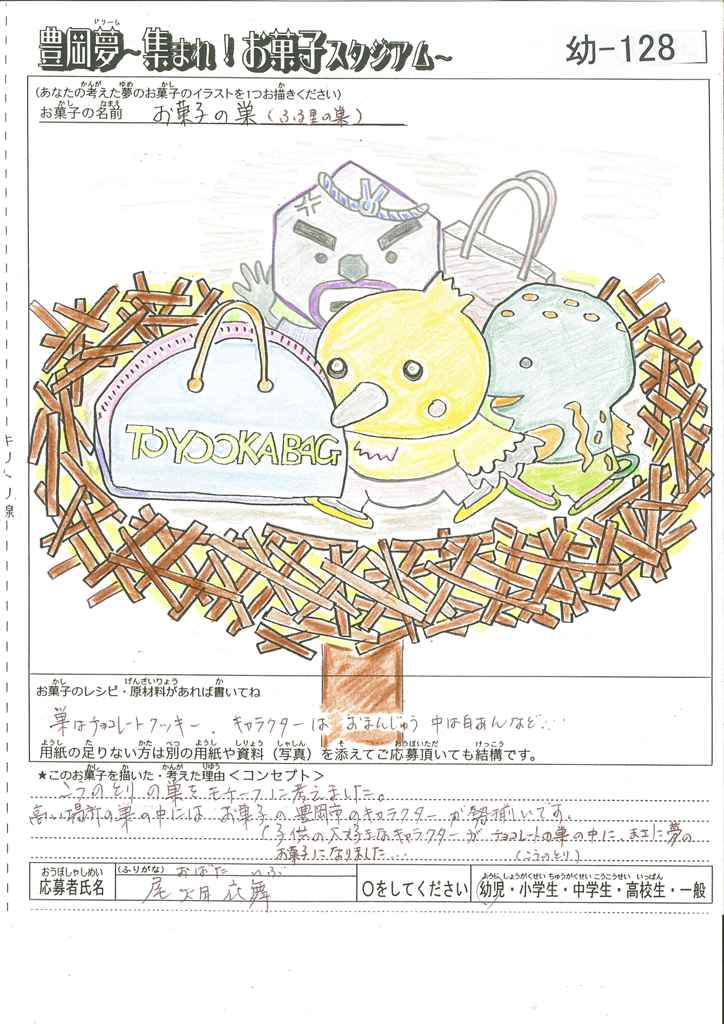 豊岡夢~集まれ！お菓子スタジアム~
幼-128
(あなたの考えた夢のお菓子のイラストを1つお描きください)
お菓子の名前 お菓子の巣(ふる里の巣)
TOYOOKABAG
キリトリ線
お菓子のレシピ・原材料があれば書いてね
巣はチョコレートクッキー、キャラクターは おまんじゅう 中は白あんなど・・・
用紙の足りない方は別の用紙や資料（写真）を添えてご応募頂いても結構です。
★このお菓子を描いた・考えた理由＜コンセプト＞
こうのとりの巣をモチーフに考えました。
高い場所の巣の中には、お菓子の豊岡市のキャラクターが勢揃いです。
(子供の大好きなキャラクターが チョコレートの巣の中に、まさに夢の
お菓子になりました・・・ (こうのとり)
応募者氏名 (ふりがな) おばた いぶ
尾畑 衣舞
○をしてください 幼児・小学生・中学生・高校生・一般